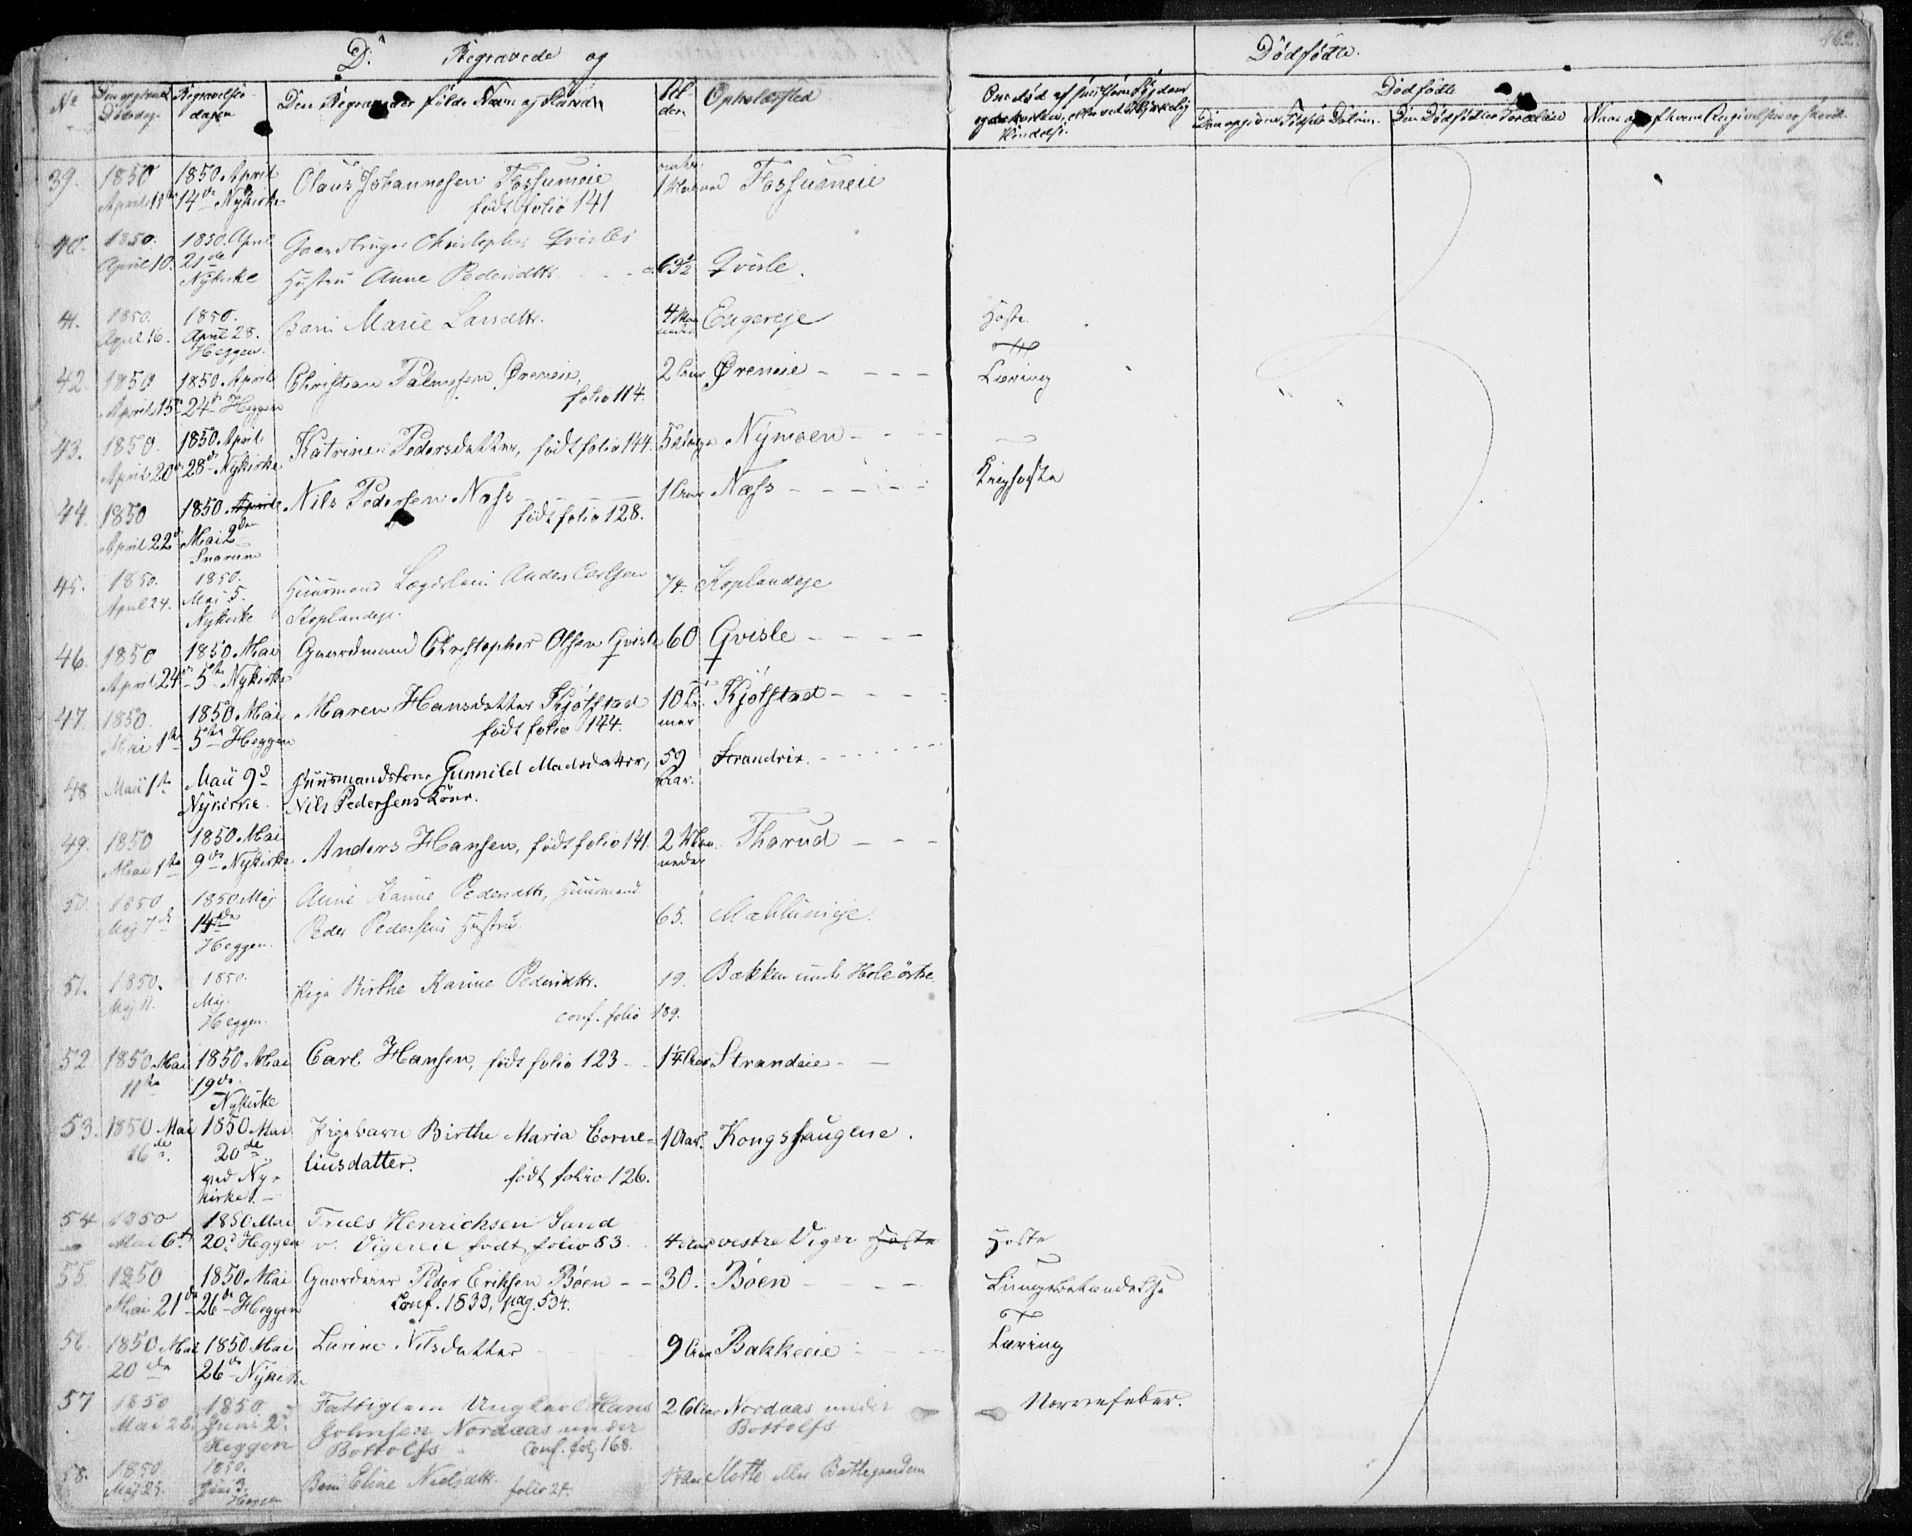 D. Begravede og
Dødfødte.
462.
No
Døds dag.
Begravelses-
dagen
Den Begravedes fulde Navn og Stand
Al-
der.
Opholdssted
Dødfødte
39. 1850 April 11te 1850 April 14de Nykirke Olaus Johannesen Fossumeie
født folio 141
1 Maaned Fossumeie
40. 1850. April 10. 1850. April 21de Nykirke Gaardbruger Christopher Qvisles
Hustru Anne Pedersdttr.
63½ Qvisle.
41. 1850. April 16. 1850. April 28. Heggen. Barn Marie Larsdttr. 4 Maaneder Engereje Hoste
42. 1850 April 15de 1850 April 24de Heggen Christian Palmesen Øreneie,
folio 114.
2 Aar Øreneie
Tæring
43. 1850. April 20de 1850 April 28de Nykirke Katrine Pedersdatter, født folio 144. 5 Dage Nymoen
44. 1850 April 22de 1850 April Mai 2den Snarum Nils Pedersen Næss
født folio 128.
1 Aar Næss Krighoste
45. 1850. April 24. 1850. Mai 5. Nykirke Huusmand Lægdslem Anders Carlsen
Koplandeje.
74. Koplandeje
46. 1850 April 24de 1850 Mai 5te Nykirke Gaardmand Christopher Olsen Qvisle 60 Qvisle
47. 1850. Mai 1te 1850 Mai 5te Heggen Maren Hansdatter Kjølstad
født folio 144.
10 Ti-
mer
Kjølstad
48 Maii 1te Maii 9de Nykirke. Huusmandskone Gunnild Madsdatter,
Nils Pedersens Kone.
59
Aar.
Strandeie.
49. 1850 Mai 1te 1850 Mai 9de Nykirke Anders Hansen, født folio 141. 2 Maa-
neder
Thorud
50 1850 Maj 7de 1850 Maj 14de Heggen. Anne Karine Pedersdttr, Huusmand
Peder Pedersens Hustru.
65. Mæhlumeje.
51. 1850. Maj 11. 1850. Maj. Heggen. Pige Birthe Karine Pedersdttr.
conf. folio 189.
19. Bækken under Hole østre
52 1850 Mai 11te 1850 Mai 19de Nykirke Carl Hansen, født folio 123 1¼ Aar Strandeie
53. 1850 Mai 16de. 1850 Mai 20de ved Ny-
kirke. Pigebarn Birthe Maria Corne-
liusdatter.
født folio 126.
1 Aar. Kongshaugene.
54 1850 Mai 6te 1850 Mai 20de Heggen Truls Henrichsen Sand
v. Vigereie født folio 83.
4 Aar vestre Viger Hoste Hoste
55. 1850 Mai 21de 1850 Mai 26de Heggen Gaardeier Peder Eriksen Bøen
Conf. 1833, pag. 534.
30. Bøen Lungebetændelse
56. 1850 Mai 20de 1850 Mai 26de Nykirke Larine Nilsdatter 9 Aar Bakkeeie
Tæring
57 1850 Mai 28. 1850 Juni 2. Heggen Fattiglem Ungkarl Hans
Johnsen Nordaas under
Bottolfs Conf. fol. 168.
26 Aar Nordaas under
Bottolfs
Nervefeber.
58. 1850 Maj 29. 1850. Juni 3. Barn Eline Nielsdttr. folio 24. Slette eller